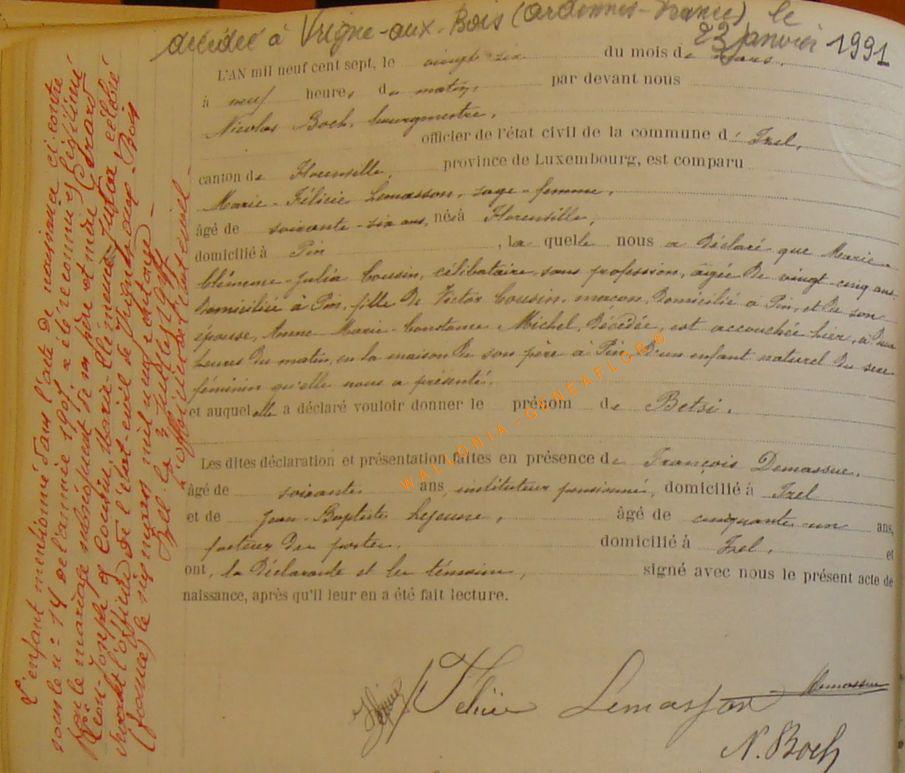 décédée à Vrigne-aux-Bois (Ardennes-France) le
23 janvier 1991
L'AN mil neuf cent sept, le vingt six du mois de Mars,
à neuf heures du matin, par devant nous
Nicolas Boch, bourgmestre,
officier de l'état civil de la commune d' Izel,
canton de Florenville, province de Luxembourg, est comparu
Marie-Félicie Lemasson, sage-femme,
âgé de soixante-six ans, né à Florenville,
domicilié à Pin, laquelle nous a déclaré que Marie-
Clémence-Julia Cousin, célibataire, sans profession, âgée de vingt-cinq ans,
domiciliée à Pin, fille de Victor Cousin, maçon, domicilié à Pin, et de son
épouse, Anne-Marie-Constance Michel, décédée, est accouchée hier, à
heures du matin, en la maison de son père à Pin d'un enfant naturel du sexe
féminin qu'elle nous a présenté,
et auquel elle a déclaré vouloir donner le prénom de Betsi.
Les dites déclaration et présentation faites en présence de François Demassue,
âgé de soixante ans, instituteur pensionné, domicilié à Izel
et de Jean-Baptiste Lejeune, âgé de cinquante un ans,
facteur des postes, domicilié à Izel, et
ont, la déclarante et les témoins, signé avec nous le présent acte de
naissance, après qu'il leur en a été fait lecture.
Lejeune Félicie Lemasson Demassue
N. Boch
L'enfant mentionné dans l'acte de naissance ci-contre
sous le n° 14 de l'année 1907 a été reconnu et légitimé
par le mariage subséquent de ses père et mère
Léon-Joseph et Cousin Marie-Clémence-Julia célébré
devant l'officier de l'état-civil de Vrigne-aux-Bois
(France) le six mil neuf cent
Izel, le
L'officier de l'état civil
WALLONIA - GENEAFLORE